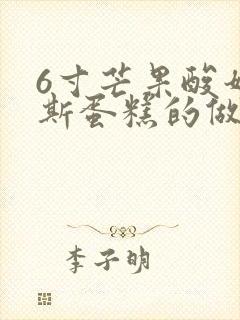 6寸芒果酸奶
斯蛋糕的做
李子明